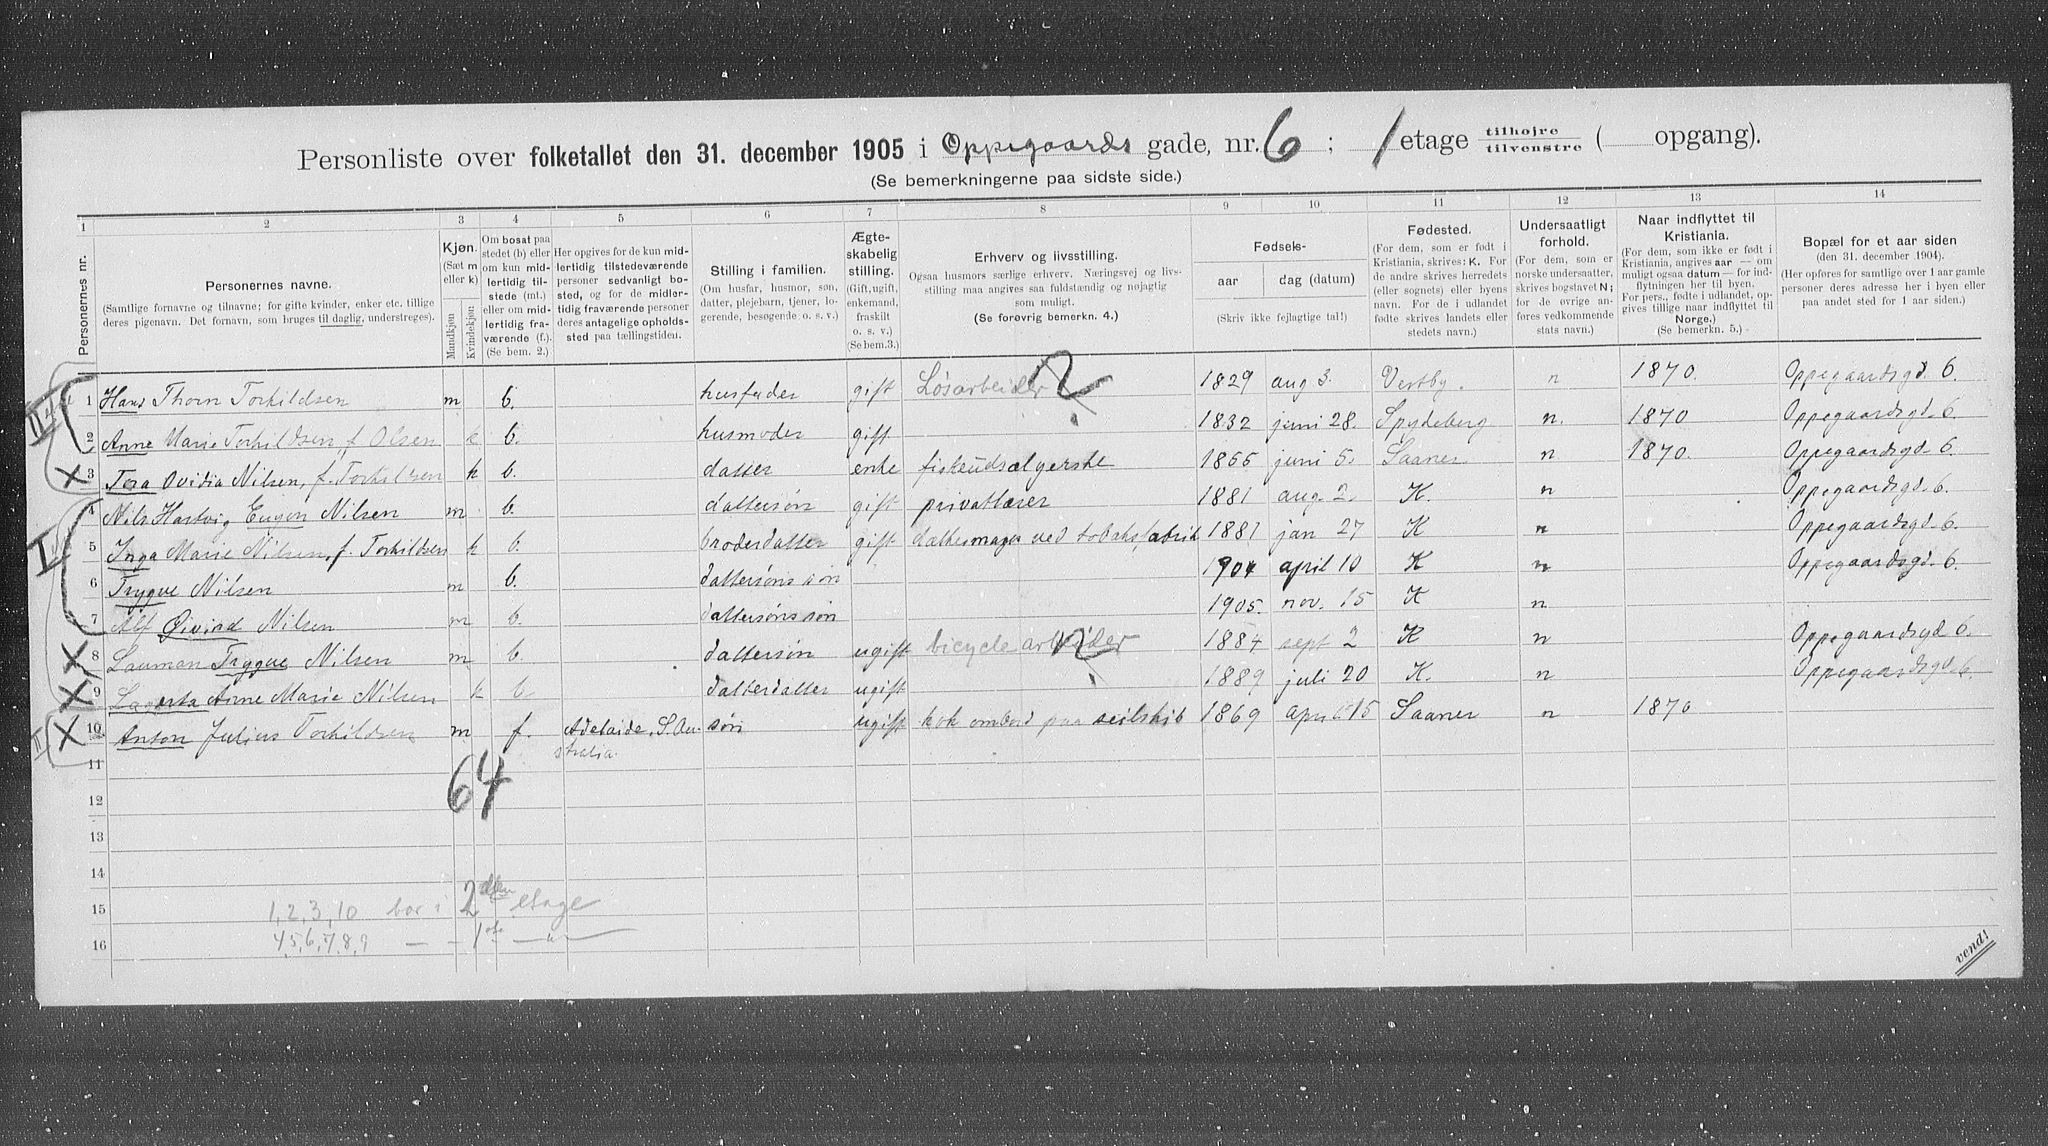 Personliste over folketallet den 31. december 1905 i Oppegaards gade, nr. 6 ; 1 etage tilhøjre / tilvenstre ( opgang).
(Se bemerkningerne paa sidste side.)
1 2 3 4 5 6 7 8 9 10 11 12 13 14
Personernes nr.
Personernes navne.
(Samtlige fornavne og tilnavne; for gifte kvinder, enker etc. tillige deres pigenavn. Det fornavn, som bruges til daglig, understreges).
Kjøn. (Sæt m eller k)
Mandkjøn
Kvindekjøn
Om bosat paa stedet (b) eller om kun midlertidig tilstede (mt.) eller om midlertidig fraværende (f.) (Se bem. 2.)
Her opgives for de kun midlertidig tilstedeværende personer sedvanligt bosted, og for de midlertidig fraværende personer deres antagelige opholdssted paa tællingstiden.
Stilling i familien. (Om husfar, husmor, søn, datter, plejebarn, tjener, logerende, besøgende o. s. v.)
Ægteskabelig stilling. (Gift, ugift, enkemand, fraskilt o. s. v.) (Se bem. 3.)
Erhverv og livsstilling. Ogsaa husmors særlige erhverv. Næringsvej og livsstilling maa angives saa fuldstændig og nøjagtig som muligt. (Se forøvrig bemerkn. 4.)
Fødsels-
aar
dag (datum)
(Skriv ikke fejlagtige tal!)
Fødested. (For dem, som er født i Kristiania, skrives: K. For de andre skrives herredets (eller sognets) eller byens navn. For de i udlandet fødte skrives landets eller stedets navn.)
Undersaatligt forhold. (For dem, som er norske undersaatter, skrives bogstavet N; for de øvrige anføres vedkommende stats navn.)
Naar indflyttet til Kristiania. (For dem, som ikke er født i Kristiania, angives aar — om muligt ogsaa datum — for indflytningen her til byen. For pers., fødte i udlandet, opgives tillige naar indflyttet til Norge.) (Se bemerkn. 5.)
Bopæl for et aar siden (den 31. december 1904). (Her opføres for samtlige over 1 aar gamle personer deres adresse her i byen eller paa andet sted for 1 aar siden.)
II 1 Hans Thorn Torkildsen m b. husfader gift Løsarbeider ? 1829 aug 3. Vestby. n 1870. Oppegaardsgd. 6.
2 Anne Marie Torkildsen f. Olsen k b. husmoder gift 1832 juni 28. Spydeberg n. 1870 Oppegaardsgd. 6.
X 3 Tora Ovidia Nilsen, f. Torkildsen k b. datter enke fiskeudsælgerske juni 5. Saaner n 1870. Oppegaardsgd. 6.
4 Nils Hartvig Eugen Nilsen m b. dattersøn gift privatlærer 1881 aug. 2. K. n Oppegaardsgd. 6.
I 5 Inga Marie Nilsen, f. Torkildsen k b. broderdatter gift ved tobaksfabrik 1881 jan 27 K n Oppegaardsgd. 6.
6 Trygve Nilsen m b. dattersøns søn 1904 april 10 K n Oppegaardsgd. 6.
7 Alf Øivind Nilsen m b. dattersøns søn 1905. nov. 15 K n
X 8 Lauman Trygve Nilsen m b. dattersøn ugift bicyclearbeider ? 1884 sept 2 K n Oppegaardsgd 6.
X 9 Anne Marie Nilsen k b datterdatter ugift 1889 juli 20 K. n Oppegaardsgd. 6.
II X 10 Anton Julius Torkildsen m f. Adelaide, S. Au- søn ugift kok ombord paa seilskib 1869 april 15 Saaner n 1870
stralia.
11
64
12
13
14
15 1, 2, 3, 10 bor i 2den etage
16 4, 5, 6, 7, 8, 9 — - 1ste — " —
vend!